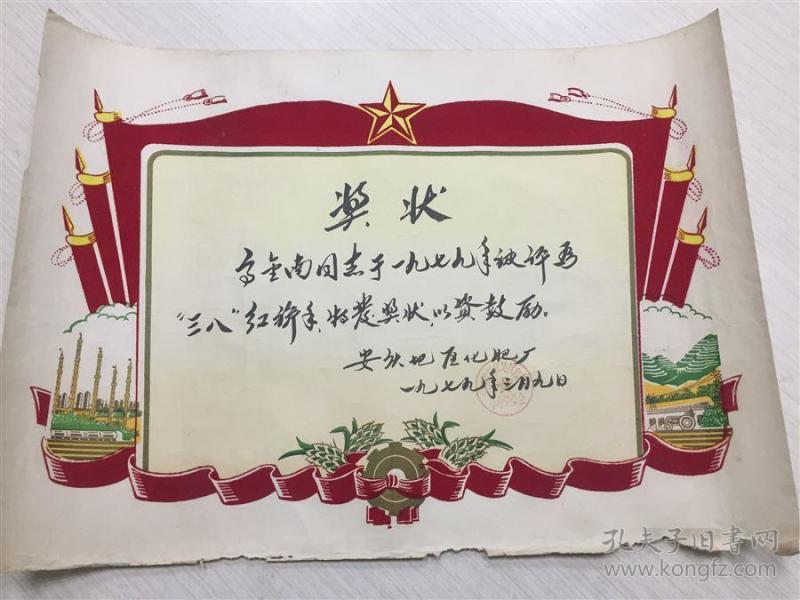 奖状
高金南同志于一九七九年被评为
“三八”红旗手，特发奖状，以资鼓励。
安庆地区化肥厂
一九七九年三月九日
孔夫子旧書网
www.kongfz.com